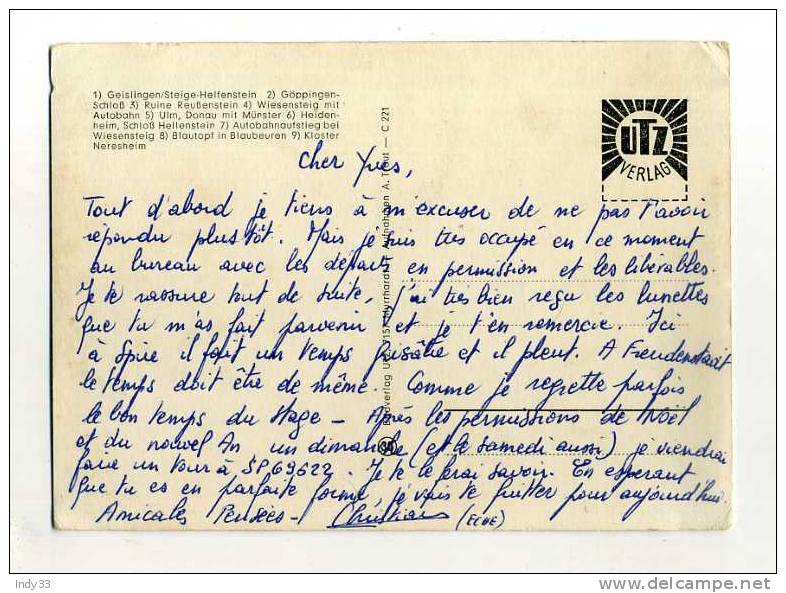 1) Geislingen/Steige-Helfenstein 2) Göppingen-
Schloß 3) Ruine Reußenstein 4) Wiesensteig mit
Autobahn 5) Ulm, Donau mit Münster 6) Heiden-
heim, Schloß Hellenstein 7) Autobahnaufstieg bei
Wiesensteig 8) Blautopf in Blaubeuren 9) Kloster
Neresheim
UTZ
VERLAG
Aufnahmen A. — C 221
Cher Yves,
Tout d'abord je tiens à m'excuser de ne pas t'avoir
répondu plustôt. Mais je suis très occupé en ce moment
au bureau avec les départs en permission et les libérables.
Je te rassure tout de suite, j'ai très bien reçu les lunettes
que tu m'as fait parvenir et je t'en remercie. Ici
à Spire il fait un temps grisâtre et il pleut. A Freudenstadt
le temps doit être de même. Comme je regrette parfois
le bon temps du stage - Après les permissions de Noël
et du nouvel An un dimanche (et le samedi aussi) je viendrai
faire un tour à SP 69622. Je te le ferai savoir. En esperant
que tu es en parfaite forme, je vais te quitter pour aujourd'hui.
Amicales Pensées - Christian
Indy33
www.delcampe.net